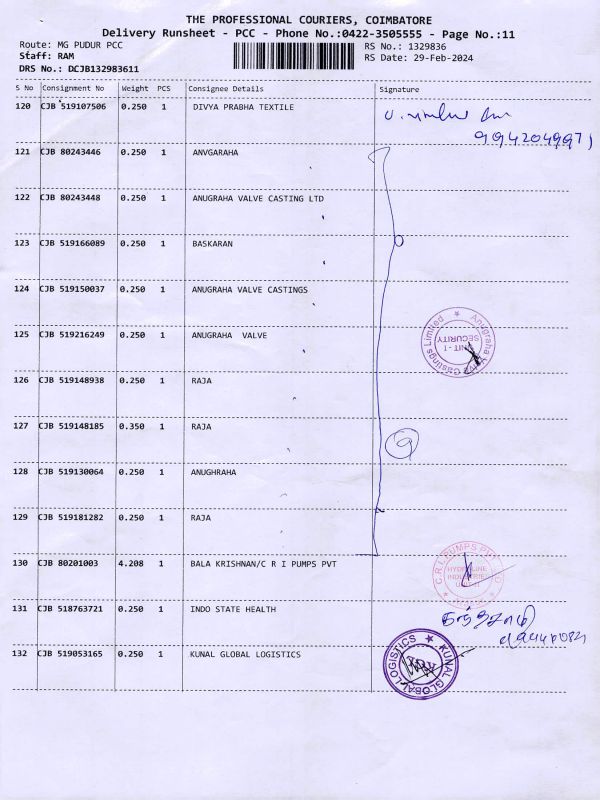 THE PROFESSIONAL COURIERS, COIMBATORE
Delivery Runsheet - PCC - Phone No.:0422-3505555 - Page No.:11
Route: MG PUDUR PCC
RS No.: 1329836
Staff: RAM
RS Date: 29-Feb-2024
DRS No.: DCJB132983611
S No Consignment No Weight PCS Consignee Details Signature
120 CJB 519107506 0.250 1 DIVYA PRABHA TEXTILE
9942049971
121 CJB 80243446 0.250 1 ANVGARAHA
122 CJB 80243448 0.250 1 ANUGRAHA VALVE CASTING LTD
123 CJB 519166089 0.250 1 BASKARAN
124 CJB 519150037 0.250 1 ANUGRAHA VALVE CASTINGS
125 CJB 519216249 0.250 1 ANUGRAHA VALVE
Anugraha Valve Castings Limited
UNIT-I
SECURITY
126 CJB 519148938 0.250 1 RAJA
127 CJB 519148185 0.350 1 RAJA
9
128 CJB 519130064 0.250 1 ANUGHRAHA
129 CJB 519181282 0.250 1 RAJA
130 CJB 80201003 4.208 1 BALA KRISHNAN/C R I PUMPS PVT
C.R.I. PUMPS
131 CJB 518763721 0.250 1 INDO STATE HEALTH
132 CJB 519053165 0.250 1 KUNAL GLOBAL LOGISTICS
KUNAL GLOBAL LOGISTICS